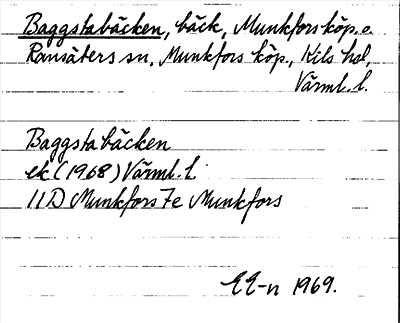 Baggstabäcken, bäck, Munkfors köp. o.
Ransäters sn, Munkfors köp., Kils hd,
Värml. l.
Baggstabäcken
ek (1968) Värml. l.
11D Munkfors 7e Munkfors
EE-n 1969.